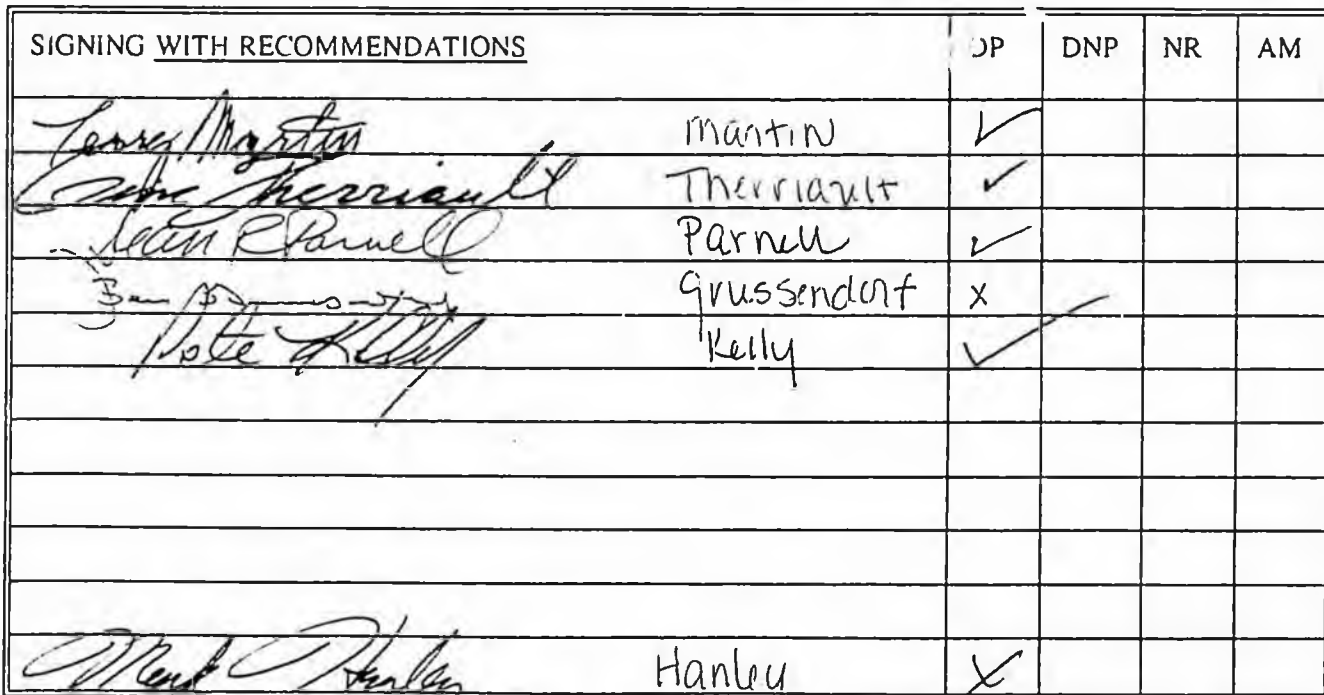 SIGNING WITH RECOMMENDATIONS DP DNP NR AM
Terry Martin Martin ✓
Gene Therriault Therriault ✓
Sean R Parnell Parnell ✓
Ben Grussendorf x
Pete Kelly Kelly ✓
Mark Hanley Hanley X